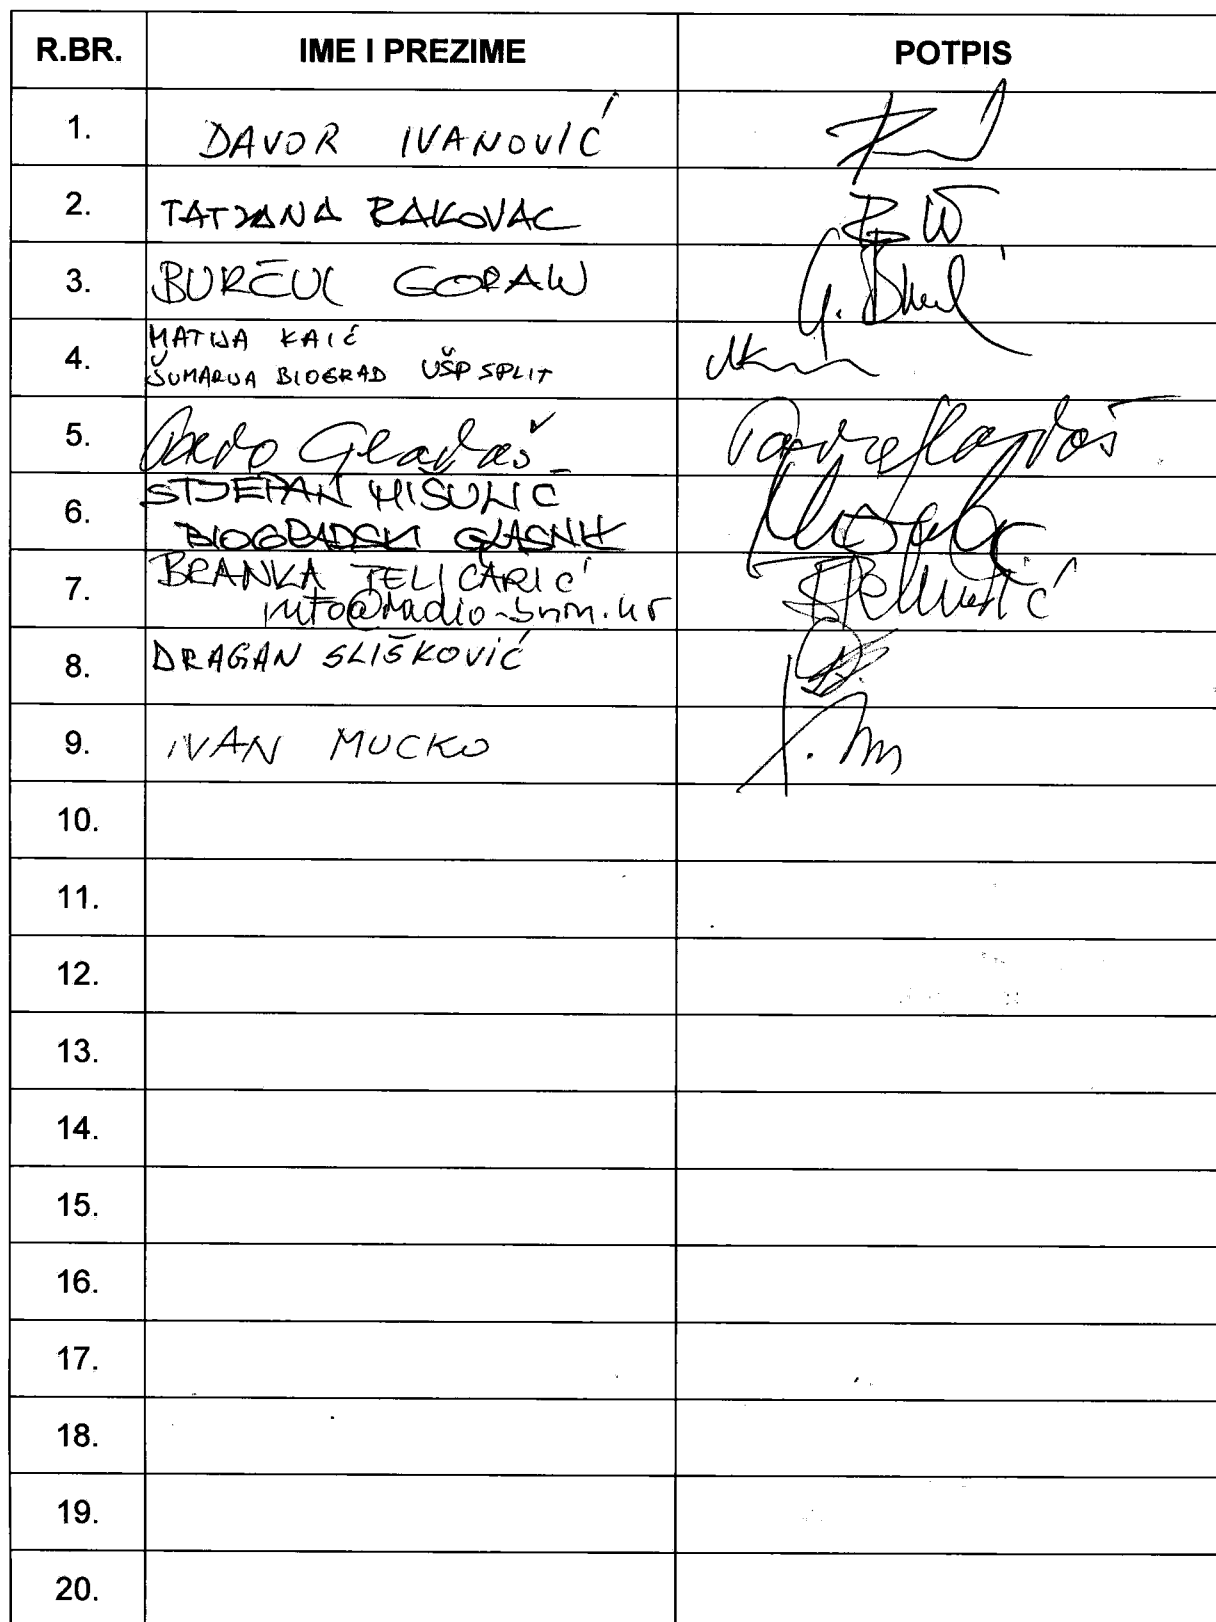 R.BR. IME I PREZIME POTPIS
1. DAVOR IVANOVIĆ
2. TATJANA RAKOVAC
3. BURČUL GORAN G.
4. MATIJA KAIĆ
ŠUMARIJA BIOGRAD UŠP SPLIT
5. Gladaš
6. STJEPAN MIŠULIĆ
BIOGRADSKI GLASNIK
7. BRANKA JELIČARIĆ
info@radio-bnm.hr
8. DRAGAN SLIŠKOVIĆ
9. IVAN MUCKO
10.
11.
12.
13.
14.
15.
16.
17.
18.
19.
20.